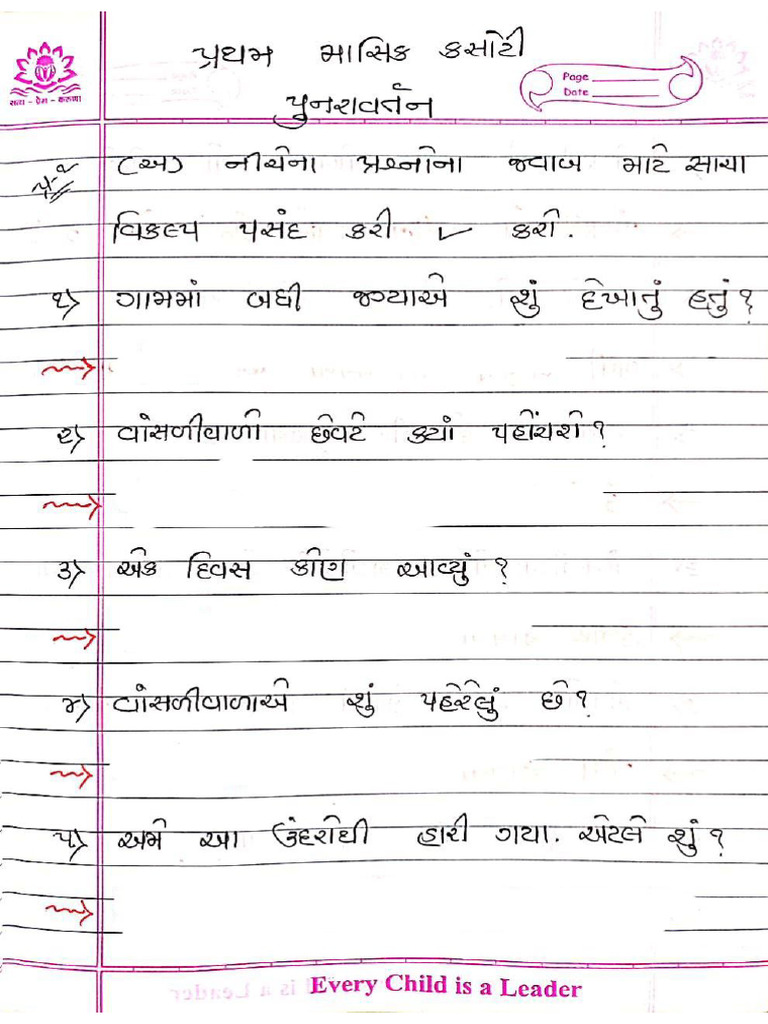 પ્રથમ માસિક કસોટી
સત્ય - પ્રેમ - કરુણા
Page
Date
પુનરાવર્તન
પ્ર-૨ (અ) નીચેના પ્રશ્નોના જવાબ માટે સાચા
વિકલ્પ પસંદ કરી ✓ કરો.
૧) ગામમાં બધી જગ્યાએ શું દેખાતું હતું?
૨) વાંસળીવાળો છેવટે ક્યાં પહોંચશે?
૩) એક દિવસ કોણ આવ્યું?
૪) વાંસળીવાળાએ શું પહેરેલું છે?
૫) અમે આ ઉંદરોથી હારી ગયા. એટલે શું?
Every Child is a Leader